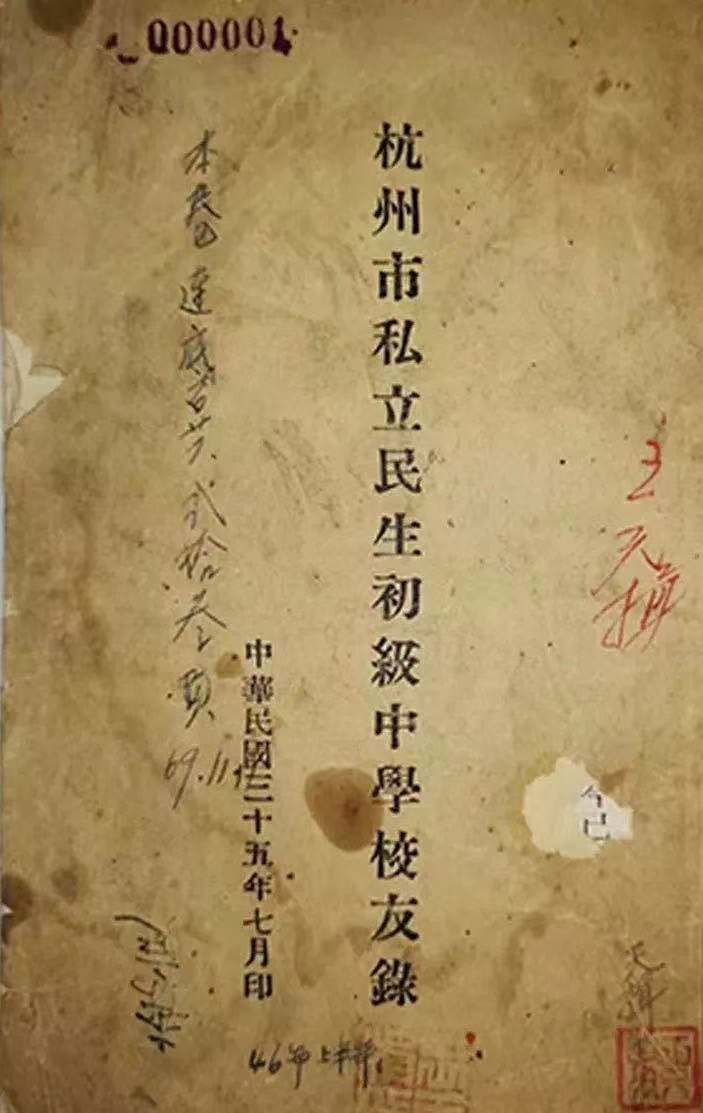 000001
王元揖
杭州市私立民生初級中學校友錄
中華民國三十五年七月印
本卷連底共弍拾叁頁
69.11
46年上半年
今已